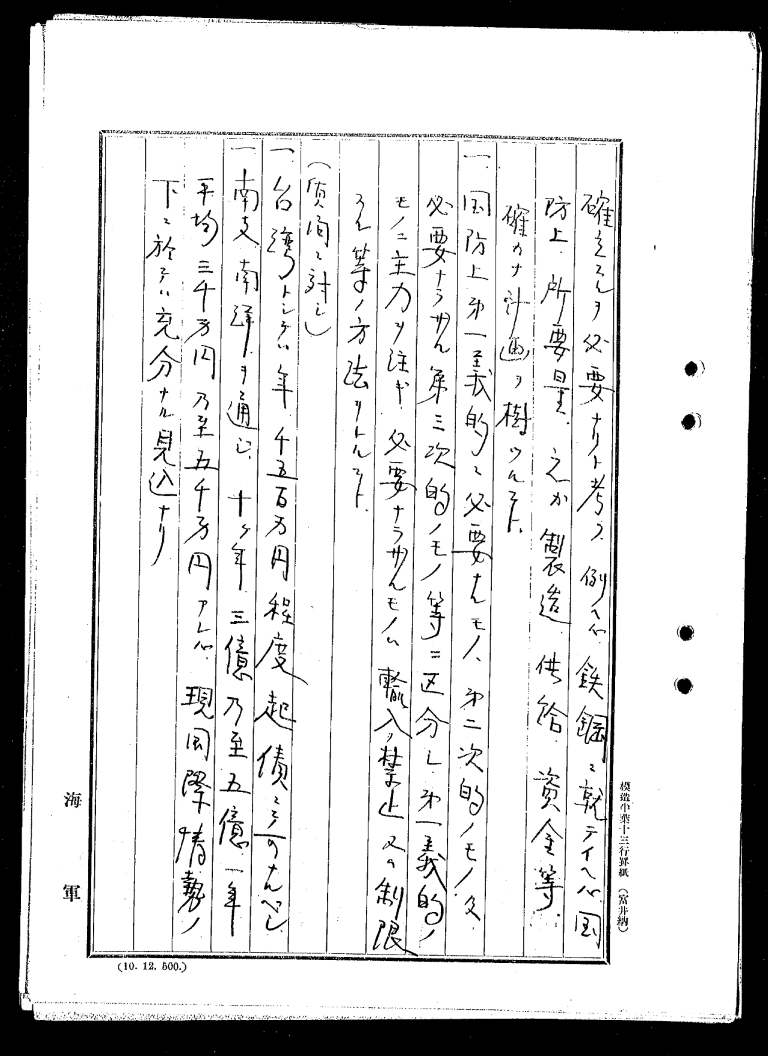 確立スルヲ必要ナリト考フ、例ヘバ鉄鋼ニ就テイヘバ国
防上、所要量、之ガ製造、供給、資金等、
確カナ計画ヲ樹ツルコト、
一、国防上第一義的ニ必要ナルモノ、第二次的ノモノ及
必要ナラザル第三次的ノモノ等ニ区分シ、第一義的ノ
モノニ主力ヲ注ギ、必要ナラザルモノハ輸入ヲ禁止又ハ制限
スル等ノ方法ヲトルコト、
(質問ニ対シ)
一、台湾トシテハ年千五百万円程度起債ニテ可ナルベシ
一、南支、南洋ヲ通ジ、十ヶ年三億乃至五億、一年
平均三千万円乃至五千万円アレバ、現国際情勢ノ
下ニ於テハ充分ナル見込ナリ
海軍
模造半葉十三行罫紙(富井納)
(10. 12. 500.)